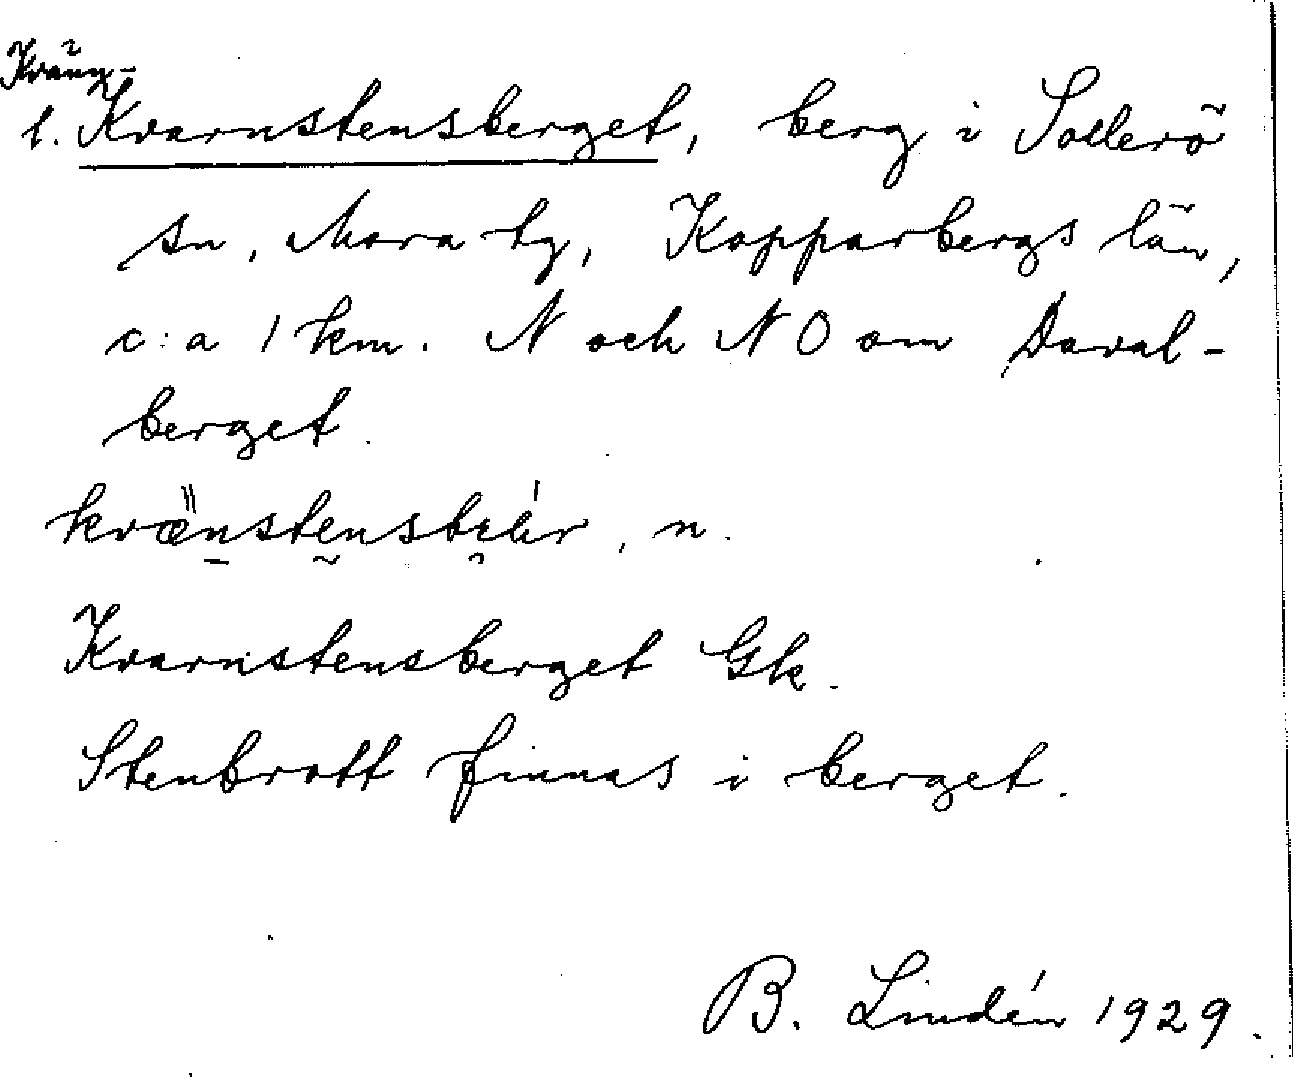 Kvänn-
l. Kvarnstensberget, berg i Sollerö
sn, Mora tg, Kopparbergs län,
c:a 1 km. N och NO om Daval-
berget.
n.
Kvarnstensberget Gk.
Stenbrott finnas i berget.
B. Lindén 1929.